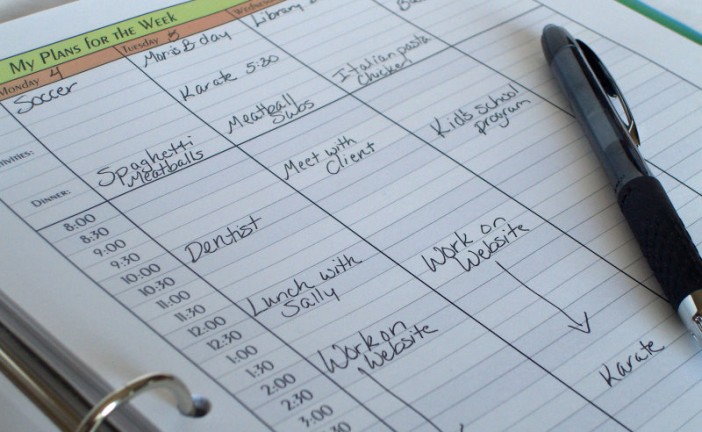 My Plans for the Week
Monday 4
Tuesday 5
Soccer
Mom's B day
Library
Karate 5:30
Italian pasta
Chicken
Meatball
Subs
Spaghetti
Meatballs
Dinner:
Meet with
Client
Kids school
program
8:00
8:30
9:00
9:30
10:00
10:30
11:00
11:30
12:00
12:30
1:00
1:30
2:00
2:30
3:00
Dentist
Lunch with
Sally
Work on
Website
Work on
Website
Karate